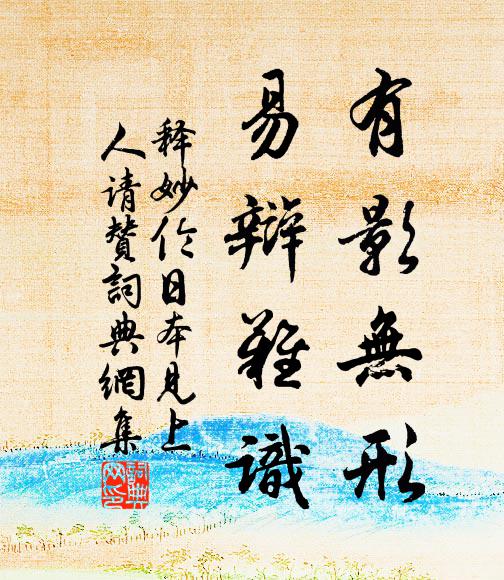 有影無形
易辯難識
释妙伦日本見上
人请赞詞典網集